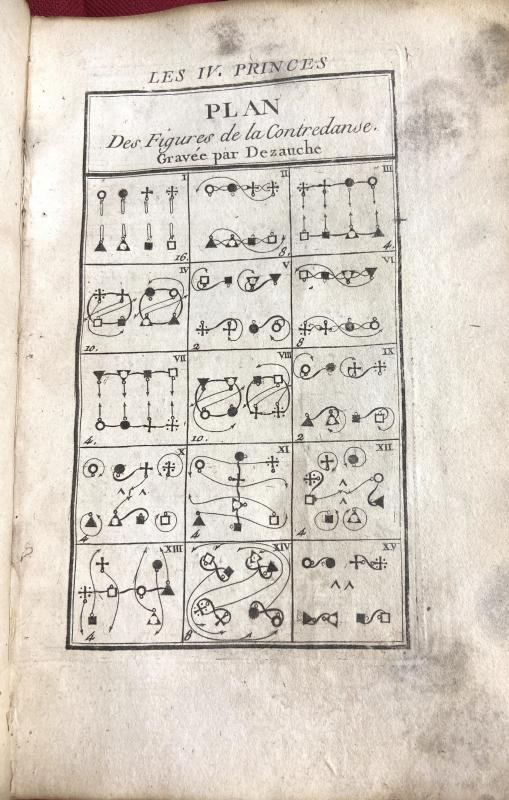 LES IV. PRINCES
PLAN
Des Figures de la Contredanse.
Gravée par Dezauche
I
16.
II
8.
III
4.
IV
10.
V
2
VI
8
VII
4.
VIII
10.
IX
2
X
4
XI
4
XII
4
XIII
4
XIV
8
XV